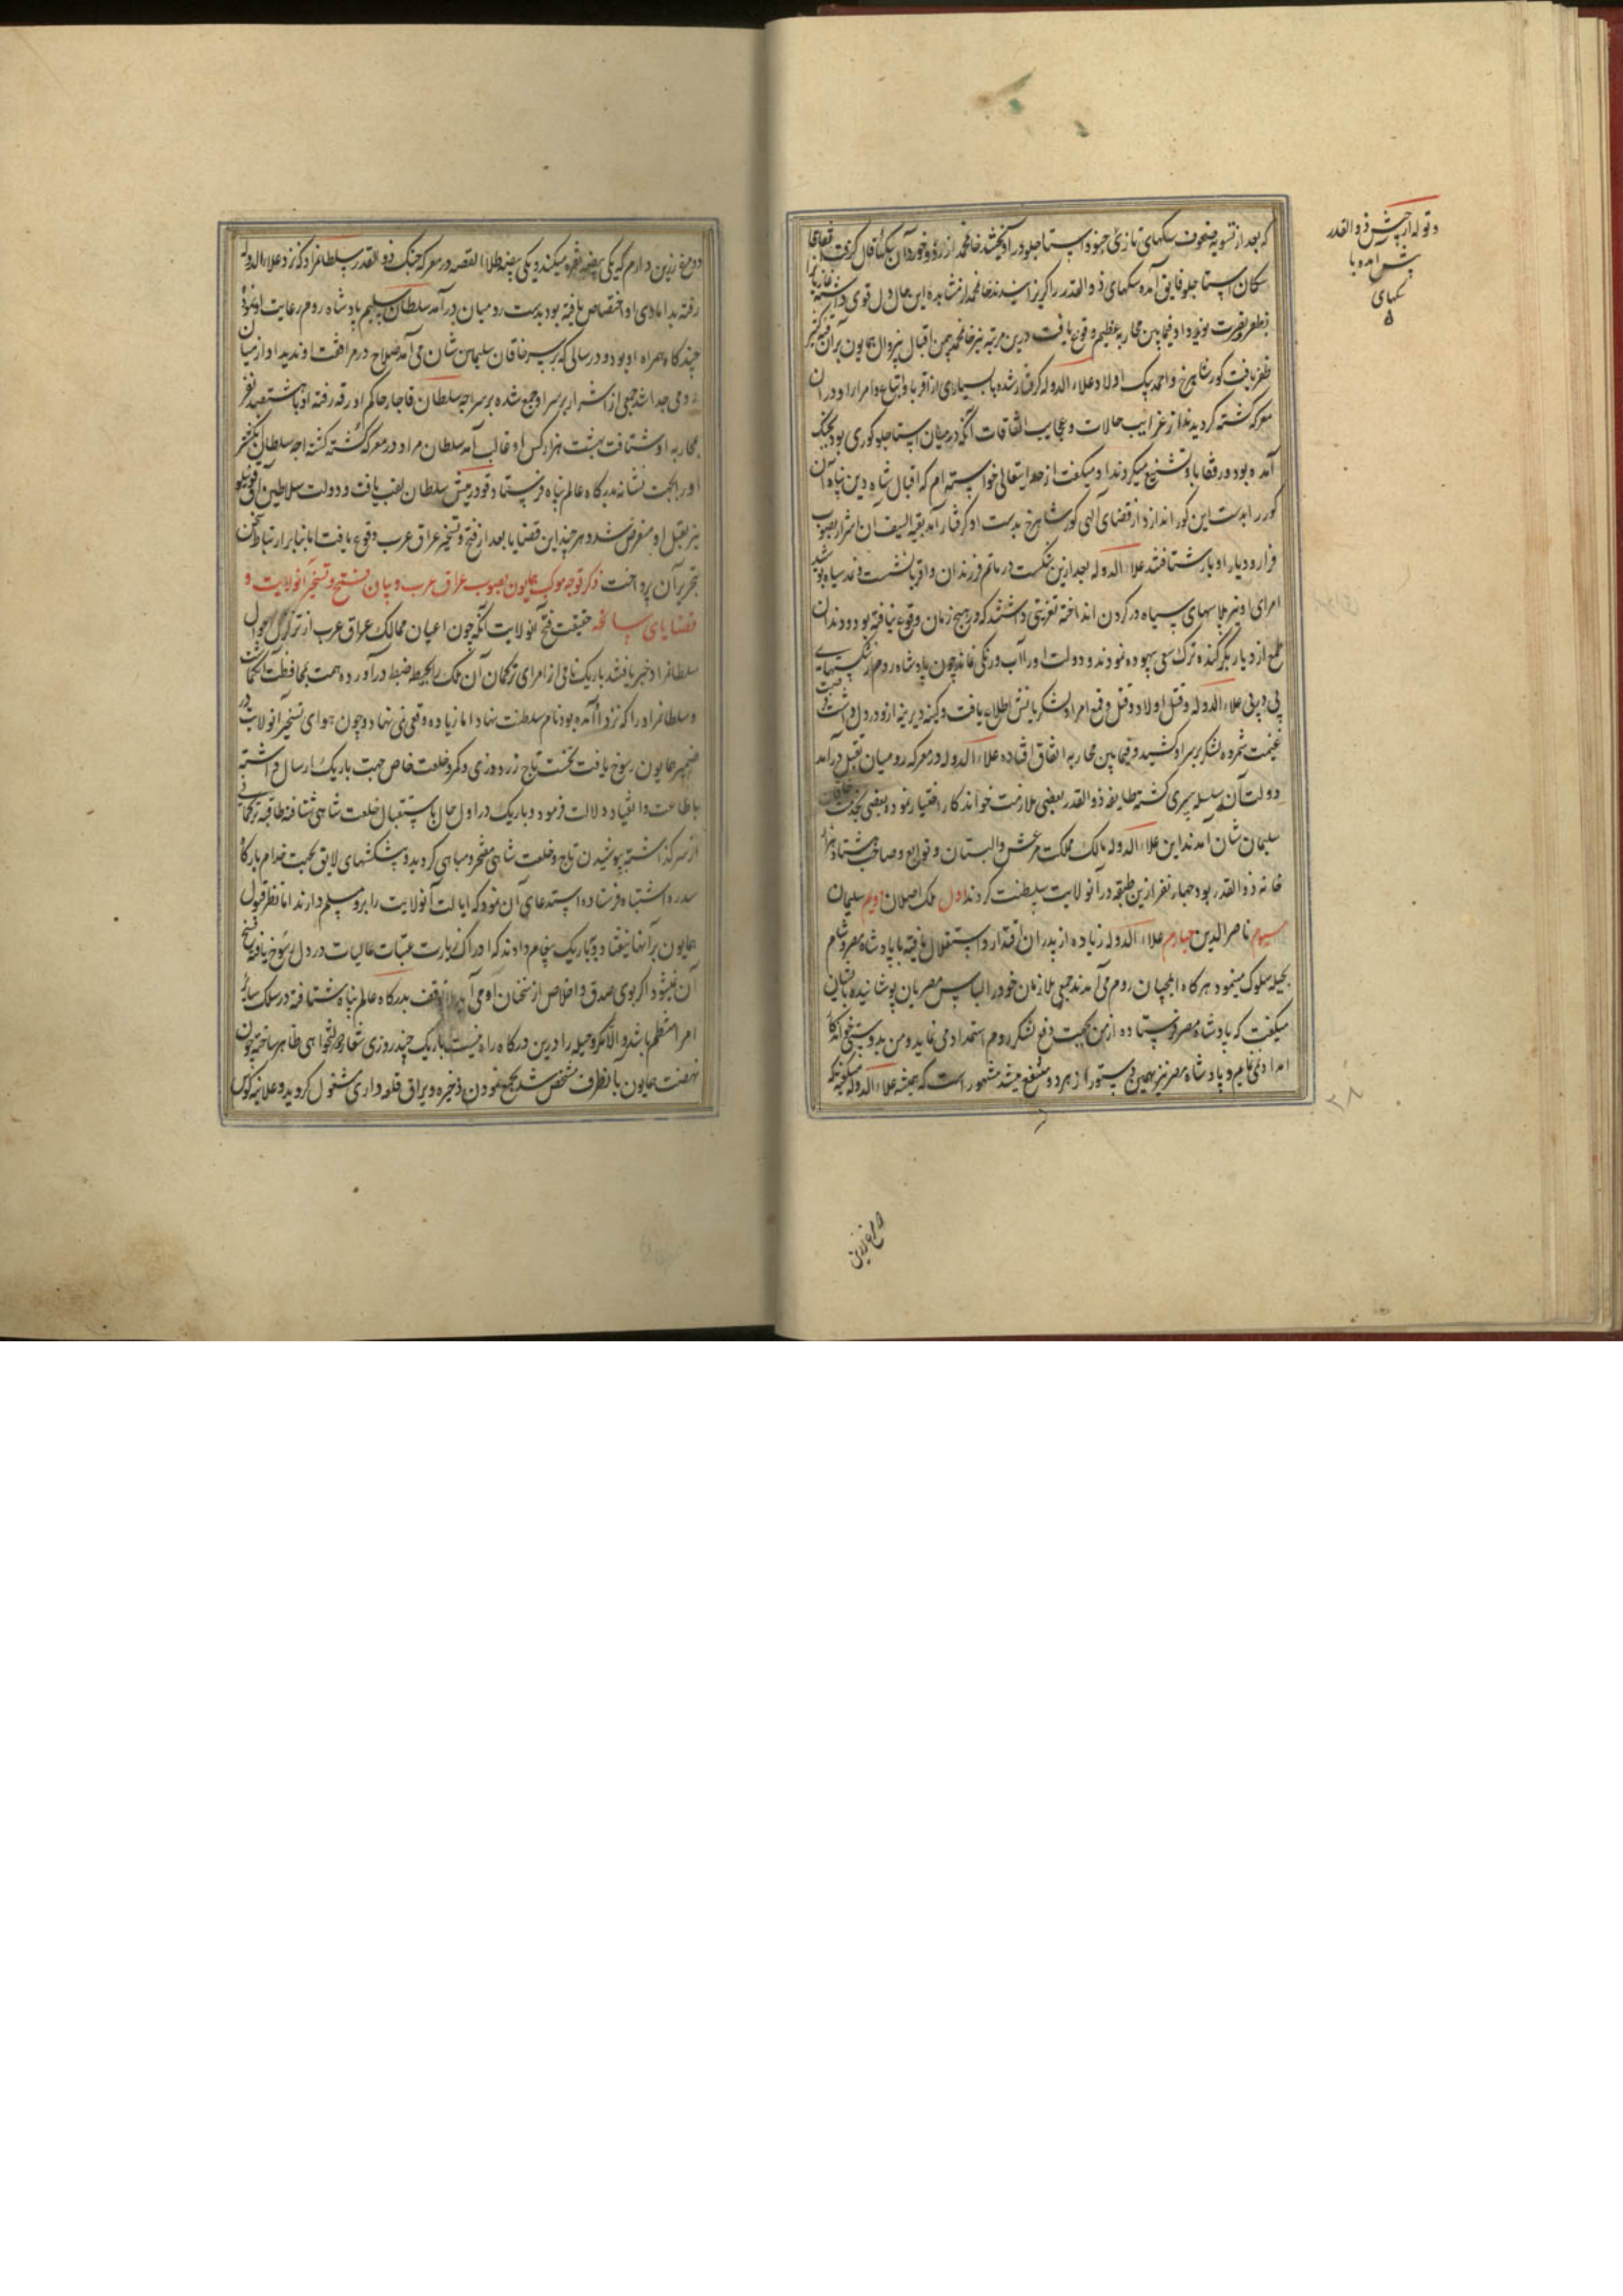 که بعد از تسویه صفوف سکهای تازی جنود استاجلو درآویختند خانمحمد از رؤوخوردآن سکها فال گرفت
سکان استاجلو فایق آمده سکهای ذوالقدر را گریزانیدند خانمحمد از مشاهده این حال دل قوی داشته
بظفر و نصرت نوید داد فیمابین محاربه عظیم وقوع یافت درین مرتبه نیز خانمحمد بیمن اقبال بیزوال همایون بر آن
ظفر یافت کور شاهرخ و احمد بیک اولاد علاءالدوله گرفتار شده با بسیاری از اقربا و اتباع و امرا او در آن
معرکه کشته گردیدند از غرایب حالات و عجایب اتفاقات آنکه در میان استاجلو کوری بود بجنگ
آمده بود و رفقا با و تشنیع میکردند او میکفت از خدایتعالی خواسته ام که اقبال شاه دین پناه آن
کور را بدست این کور اندازد از قضای آلهی کور شاهرخ بدست او گرفتار آمد بقیة السیف آن اشرار بصوب
فرار و دیار ادبار شتافتند علاءالدوله بعد ازین شکست در ماتم فرزندان و اقربا نشست و نمد سیاه پوشید
امرای او نیز پلاسهای سیاه در کردن انداخته تعزیتی داشتند که در هیچ زمان وقوع نیافته بود و دندان
طمع از دیار بکر کنده ترک سعی بیهوده نمودند و دولت او را آب و رنکی نماند چون پادشاه روم از شکستهای
پی در پی علاءالدوله و قتل اولاد و قتل وقع امرا و لشکریانش اطلاع یافت و کینه دیرینه ازو در دل داشت
غنیمت شمرده لشکر بر سر او کشید و فیمابین محاربه اتفاق افتاده علاءالدوله در معرکه رومیان بقتل درآمد
دولت آن سلسله سپری کشته طایفه ذوالقدر بعضی ملازمت خواندکار اختیار نموده بعضی بخدمت خاقان
سلیمان شان آمدند این علاءالدوله مالک مملکت مرعش و البستان و توابع و صاحب هشتاد هزار
خانه ذوالقدر بود چهار نفر ازین طبقه در آنولایت سلطنت کردند اول ملک اصلان دویم سلیمان
سیوم ناصرالدین چهارم علاءالدوله زیاده از پدران اقتدار و استقلال یافته با پادشاه مصر و شام
بحیله سلوک مینمود هرکاه ایلچیان روم می آمدند جمعی ملازمان خود را لباس مصریان پوشانیده بایشان
میکفت که پادشاه مصر فرستاده از من بجهت دفع لشکر روم استمداد می نماید و من بدوستی خواندکار
امداد نمی نمایم و پادشاه مصر نیز بهمین دستور از هر دو منتفع میشد مشهور است که همیشه علاءالدوله میکفته که
و توله از جیش ذوالقدر
پیش آمده با
سکهای
۲۸
دو مرغ زرین
دو مرغ زرین دارم که یکی بیضه نقره میکند و یکی بیضه طلا القصه در معرکه جنک ذوالقدر سلطانمراد که نزد علاءالدوله
رفته بدامادی او اختصاص یافته بود بدست رومیان درآمد سلطان سلیم پادشاه روم رعایت او نموده
چندکاه همراه او بود و در سالی که بر سر خاقان سلیمان شان می آمد صلاح در مرافقت او ندید او از میان
رومی جدا شد جمعی از اشرار بر سر او جمع شده بر سر اجه سلطان قاجار حاکم اورقه رفته او با هشتصد نفر
بمحاربه او شتافت بهشت هزار کس او غالب آمد سلطان مراد در معرکه کشته کشته اجه سلطان
او را بجهت نشانه بدرکاه عالم پناه فرستاد و قودرمیش سلطان لقب یافت و دولت سلاطین آق قوینلو
نیز بقتل او منقرض شد و هر چند این قضایا بعد از فتح و تسخیر عراق عرب وقوع یافت اما بنابر ارتباط سخن
بتحریر آن پرداخت ذکر توجه موکب همایون بصوب عراق عرب و بیان فتح و تسخیر آنولایت و
قضایای سانحه حقیقت فتح آنولایت آنکه چون اعیان ممالک عراق عرب از تزلزل احوال
سلطانمراد خبر یافتند باریک نامی از امرای ترکمان آن ملک را بحیطه ضبط درآورده همت بمحافظت آن کماشت
و سلطانمراد را که نزد او آمده بود نام سلطنت نهاد اما زیاده وقعی نمی نهاد و چون هوای تسخیر آنولایت در
ضمیر همایون رسوخ یافت نخست تاج زردوزی و کمر و خلعت خاص جهت باریک ارسال داشته
باطاعت و انقیاد دلالت فرمود و باریک در اول حال باستقبال خلعت شاهی شتافته طاقیه ترکمانی
از سر گذاشته بپوشیدن تاج و خلعت شاهی مفتخر و مباهی کردید و پیشکشهای لایق بجهت خدام بارکاه
سدره اشتباه فرستاده استدعای آن نمود که ایالت آنولایت را برو مسلم دارند اما نظر قبول
همایون بر آنها نیفتاد و بباریک پیغام دادند که ادراک زیارت عتبات عالیات در دل رسوخ یافته فسخ
آن نمیشود اکر بوی صدق و اخلاص از سخنان او می آید بلا توقف بدرکاه عالم پناه شتافته در سلک سایر
امرا منتظم باشد والا مکر و حیله را درین درکاه راه نیست باریک چند روزی شعار دولتخواهی ظاهر ساخته چون
نهضت همایون بآنطرف مشخص شد بجمع نمودن ذخیره و یراق قلعه داری مشغول کردید و علانیه کوس